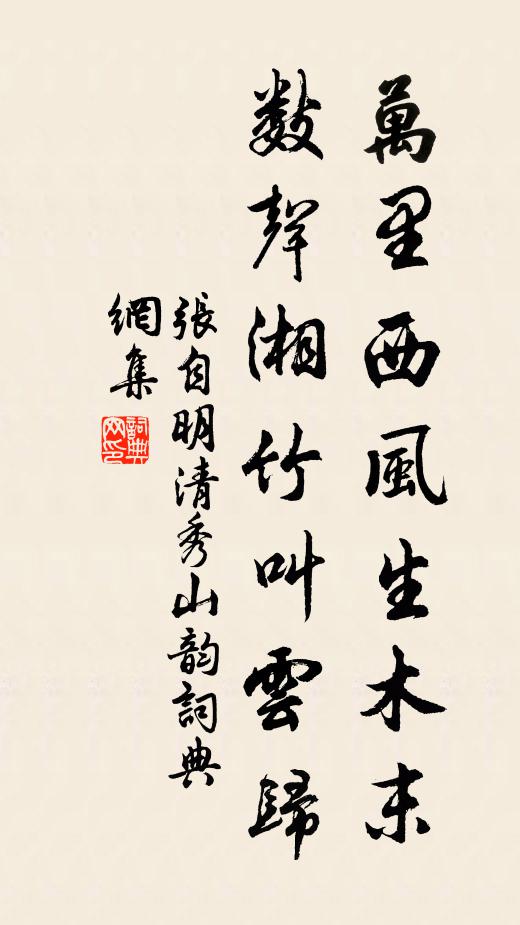 萬里西風生木末
數聲湘竹叫雲歸
張自明清秀山韵詞典
網集
詞典
网印